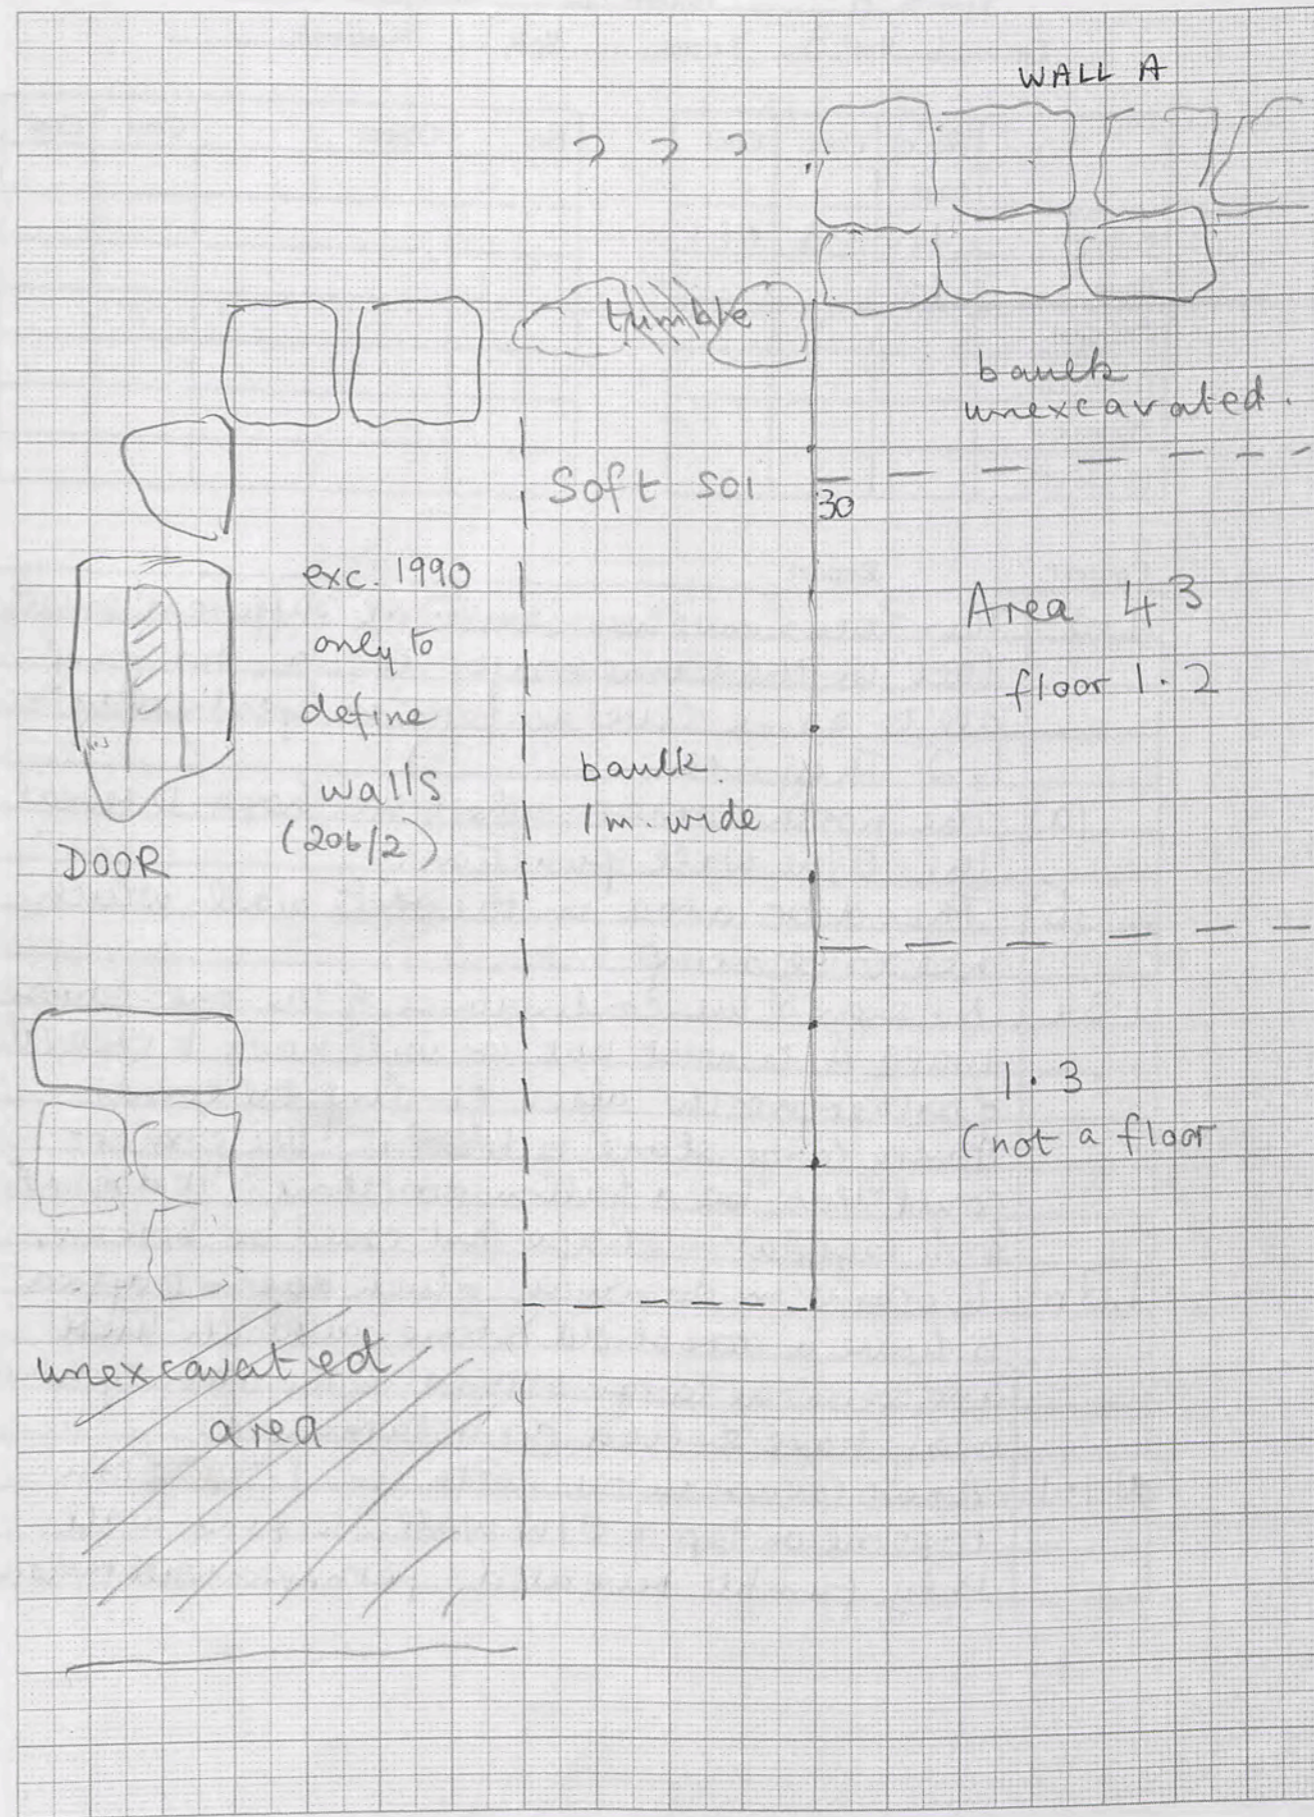 WALL A
? ? ?
tumble
baulk
unexcavated.
Soft soi
30
exc. 1990
only to
define
walls
(206/2)
Area 43
floor 1.2
baulk.
1m. wide
DOOR
1.3
(not a floor
unexcavated
area